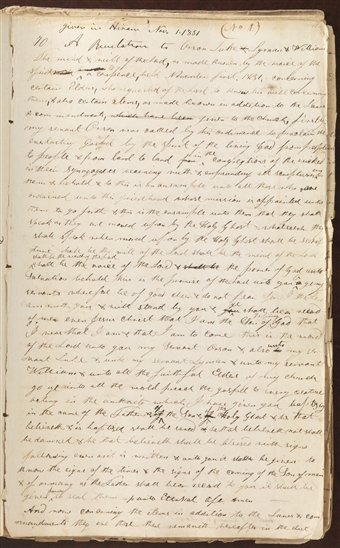 given in Hiram Nov. 1. 1831 (No 1)
70 A Revelation to Orson Luke Lyman & William
The mind & will of the Lord, as made known by the voice of the
Spirit a conference held November first, 1831, concerning
certain Elders, who requested of the Lord to know his will concerning
them, & also certain items, as made known in addition to the Laws
& commandments, which have been given to the Church, firstly
my servent Orson was called by his ordinance to proclaim the
everlasting Gospel by the Spirit of the living God from people
to people & from land to land in the congregations of the wicked
in their Synagogues reasoning with & expounding all scriptures unto
them & behold & lo this is an ensample unto all those who were
ordained unto this priesthood whose mission is appointed unto
them to go forth & this is the ensample unto them that they shall
speak as they are moved upon by the Holy Ghost & whatsoever they
shall speak when moved upon by the Holy Ghost shall be
shall be the will of the Lord shall be the mind of the Lord
shall be the word of the Lord
& shall be the voice of the Lord & shall be the power of God unto
Salvation behold this is the promise of the Lord unto you my
servants wherefore be of good cheer & do not fear for I the Lord
am with you & will stand by you & ye shall bear record
of me even Jesus Christ that I am the Son of the living God that
I was that I am & that I am to come this is the word
of the Lord unto you my servant Orson & also unto my ser-
vant Luke & unto my servent Lyman & unto my servant
William & unto all the faithful Elders of my church
go ye into all the world preach the gospell to every creature
acting in the authority which I have given you baptizing
in the name of the Father & of the Son & of the Holy Ghost & he that
believeth & is baptized shall be saved & he that believeth not shall
be damned & he that believeth shall be blessed with signs
following even as it is written & unto you it shall be given to
know the signs of the times & the signs of the coming of the Son of man
& of as many as the Father shall bear record to you it shall be
given to seal them up unto Eternal life Amen
And now concerning the items in addition to the Laws & com-
mandments they are these there remaineth hereafter in the due